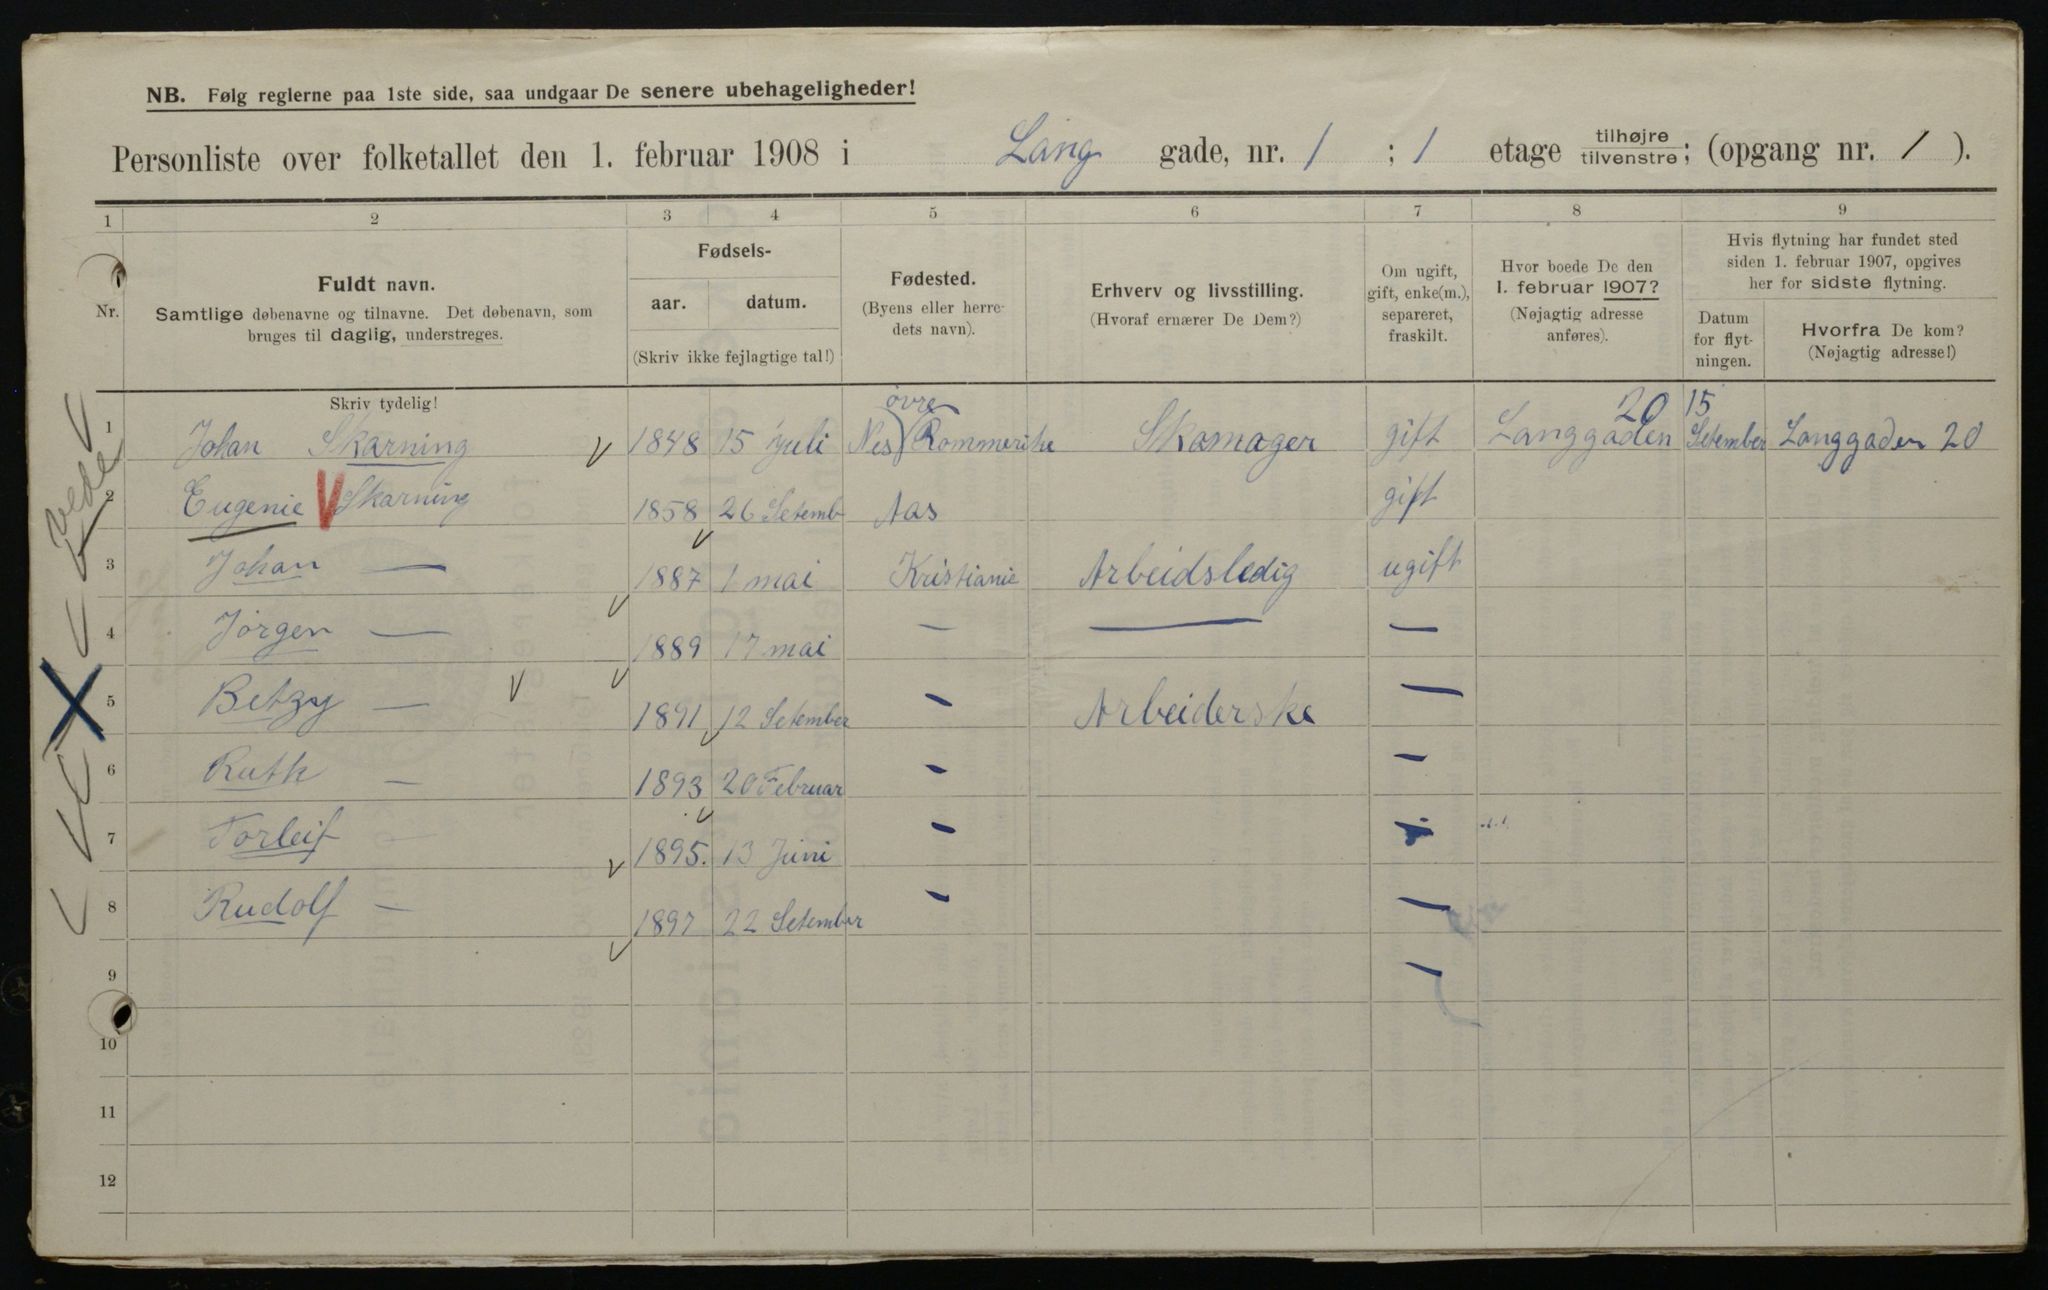 NB. Følg reglerne paa 1ste side, saa undgaar De senere ubehageligheder!
Personliste over folketallet den 1. februar 1908 i Lang gade, nr. 1 ; 1 etage tilhøjre/tilvenstre; (opgang nr. 1 ).
1 2 3 4 5 6 7 8 9
Nr.
Fuldt navn.
Samtlige døbenavne og tilnavne. Det døbenavn, som
bruges til daglig, understreges.
Fødsels-
aar. datum.
(Skriv ikke fejlagtige tal!)
Fødested.
(Byens eller herre-
dets navn).
Erhverv og livsstilling.
(Hvoraf ernærer De Dem?)
Om ugift,
gift, enke(m.),
separeret,
fraskilt.
Hvor boede De den
1. februar 1907?
(Nøjagtig adresse
anføres).
Hvis flytning har fundet sted
siden 1. februar 1907, opgives
her for sidste flytning.
Datum
for flyt-
ningen.
Hvorfra De kom?
(Nøjagtig adresse!)
Skriv tydelig!
øvre 20 15
1 Johan Skarning 1848 15 Juli Nes Rommerike Skomager gift Langgaden Setember Langgaden 20
2 Eugenie Skarning 1858 26 Setemb Aas gift
3 Johan — 1887 1 mai Kristianie Arbeidsledig ugift
4 Jørgen — 1889 17 mai — — —
5 Betzy — 1891 12 Setember - Arbeiderske —
6 Ruth — 1893 20 Februar - -
7 Torleif - 1895. 13 Juni - -
8 Rudolf - 1897 22 Setember - -
9 -
10
11
12